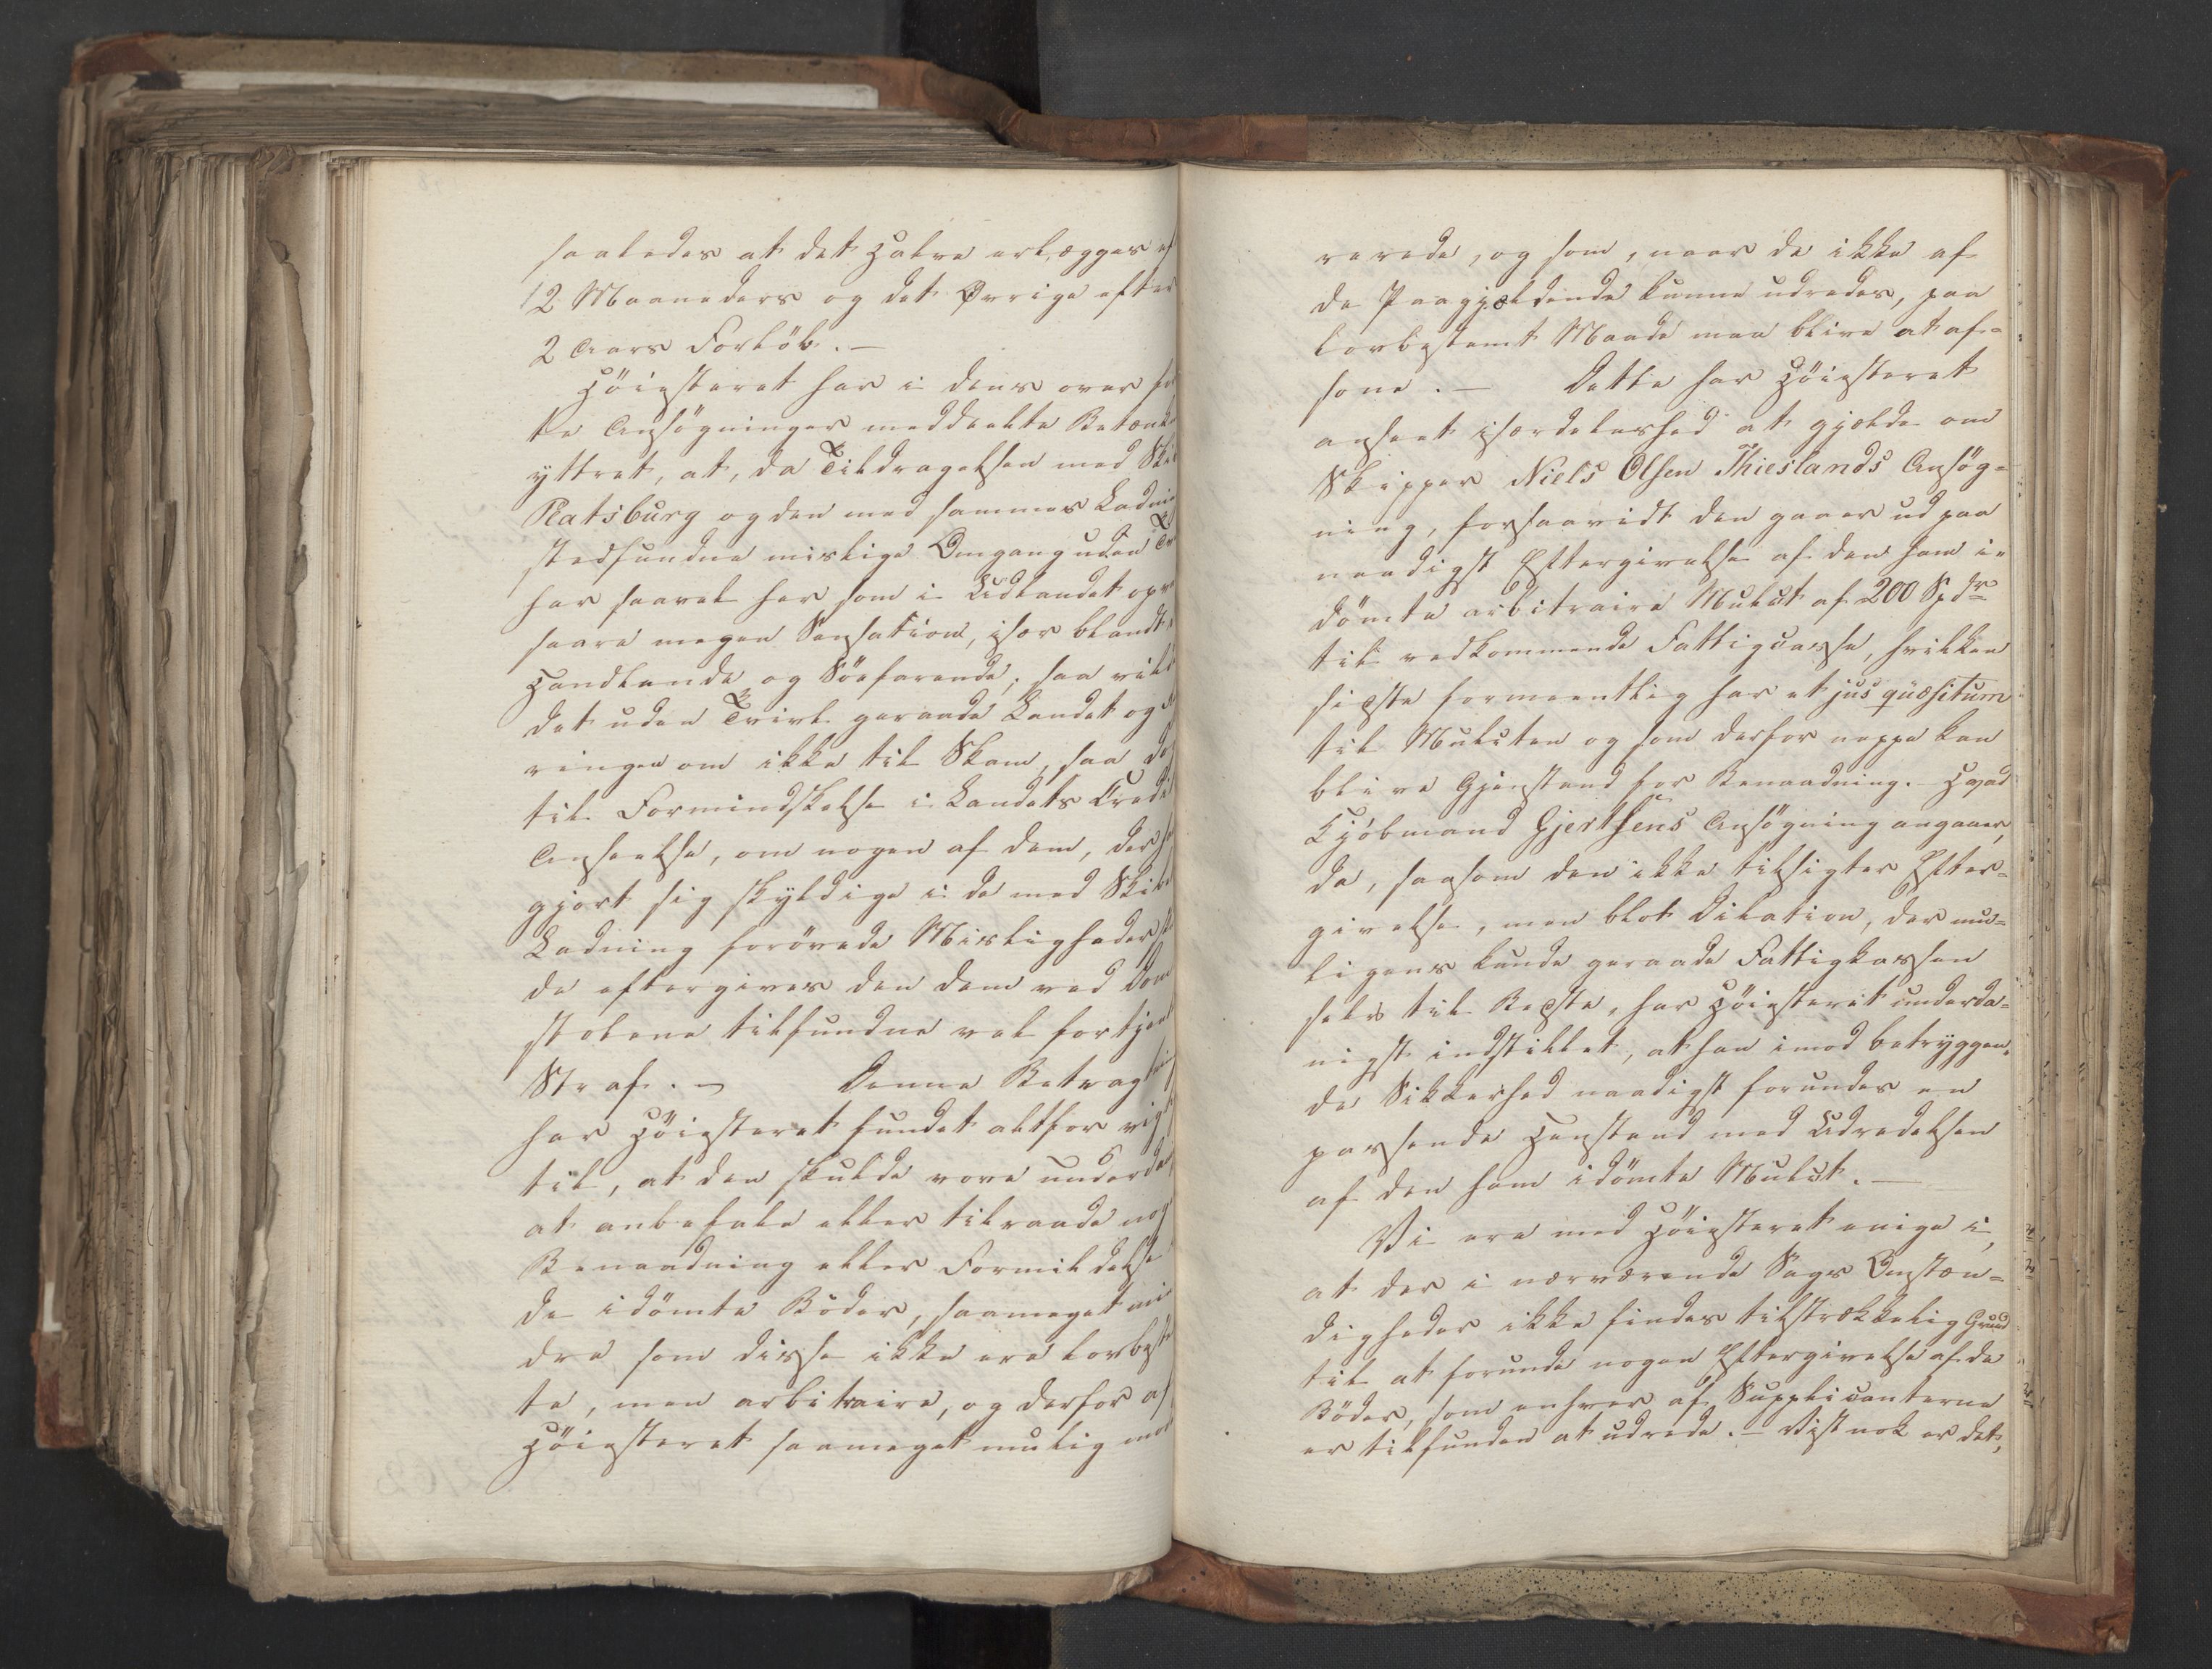 saaledes at det Halve erlægges ef
12 Maaneders og det Øvrige efter
2 Aars Forløb. —
Høiesteret har i dens over for
te Ansøgninger meddeelte Betænk
yttret, at, da Tildragelsen med Skib
Ratsburg og den med sammes Ladnin
stedfundne mislige Omgang uden Tv
har saavel her som i Udlandet opv
saare megen Sensation, især blandt
Handlende og Søefarende; saa vilde
det uden Tvivl geraade Landet og
ringen om ikke til Skam, saa do
til Formindskelse i Landets Credit
Anseelse, om nogen af dem, der ha
gjort sig skyldige i de med Skib
Ladning forøvede Misligheder sk
de eftergives den dem ved Dom
stolene tilfundne vel fortjent
Straf. — Denne Betragtni
har Høiesteret fundet altfor vigt
til, at den skulde vove underda
at anbefale eller tilraade nog
Benaadning eller Formildelse
de idømte Bøder, saameget min
dre som disse ikke ere lovbest
te, men arbitraire, og derfor af
Høiesteret saameget mulig mod
rerede, og som, naar de ikke af
de Paagjældende kunne udredes, paa
lovbestemt Maade maa blive at af=
sone. — Dette har Høiesteret
anseet isærdeleshed at gjælde om
Skipper Niels Olsen Thieslands Ansøg=
ning, forsaavidt den gaaer ud paa
naadigst Eftergivelse af den ham i=
dømte arbitraire Mulct af 200 Spdr
til vedkommende Fattigcasse, hvilken
sidste formeentlig har et jus quæsitum
til Mulcten og som derfor neppe kan
blive Gjenstand for Benaadning. – Hvad
Kjøbmand Gjertsens Ansøgning angaaer,
da, saasom den ikke tilsigter Efter=
givelse, men blot Dilation, der mu=
ligens kunde geraade Fattigkassen
selv til Bedste, har Høiesteret underda=
nigst indstillet, at han imod betryggen=
de Sikkerhed naadigst forundes en
passende Henstand med Udredelsen
af den ham idømte Mulct. —
Vi ere med Høiesteret enige i,
at der i nærværende Sags Omstæn=
digheder ikke findes tilstrækkelig Grund
til at forunde nogen Eftergivelse af de
Bøder, som enhver af Supplicanterne
er tilfunden at udrede. – Vistnok er det,